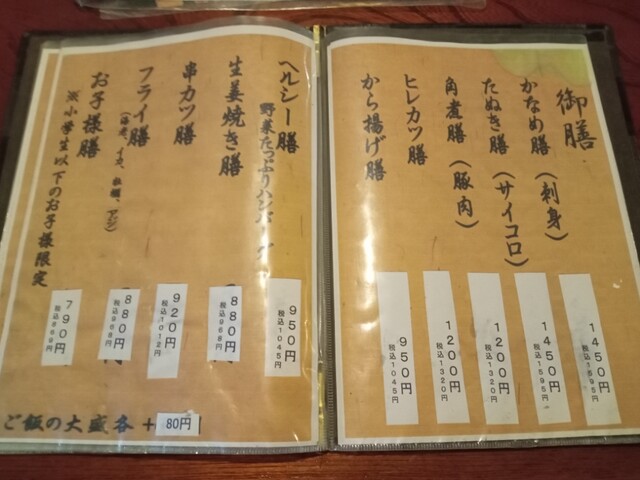 御膳
かなめ膳（刺身）
1450円
税込1595円
たぬき膳（サイコロ）
1450円
税込1595円
角煮膳（豚肉）
1200円
税込1320円
ヒレカツ膳
1200円
税込1320円
から揚げ膳
950円
税込1045円
ヘルシー膳
野菜たっぷりハンバーグ
950円
税込1045円
生姜焼き膳
880円
税込968円
串カツ膳
920円
税込1012円
フライ膳
880円
税込968円
お子様膳
※小学生以下のお子様限定
790円
税込869円
ご飯の大盛各＋80円